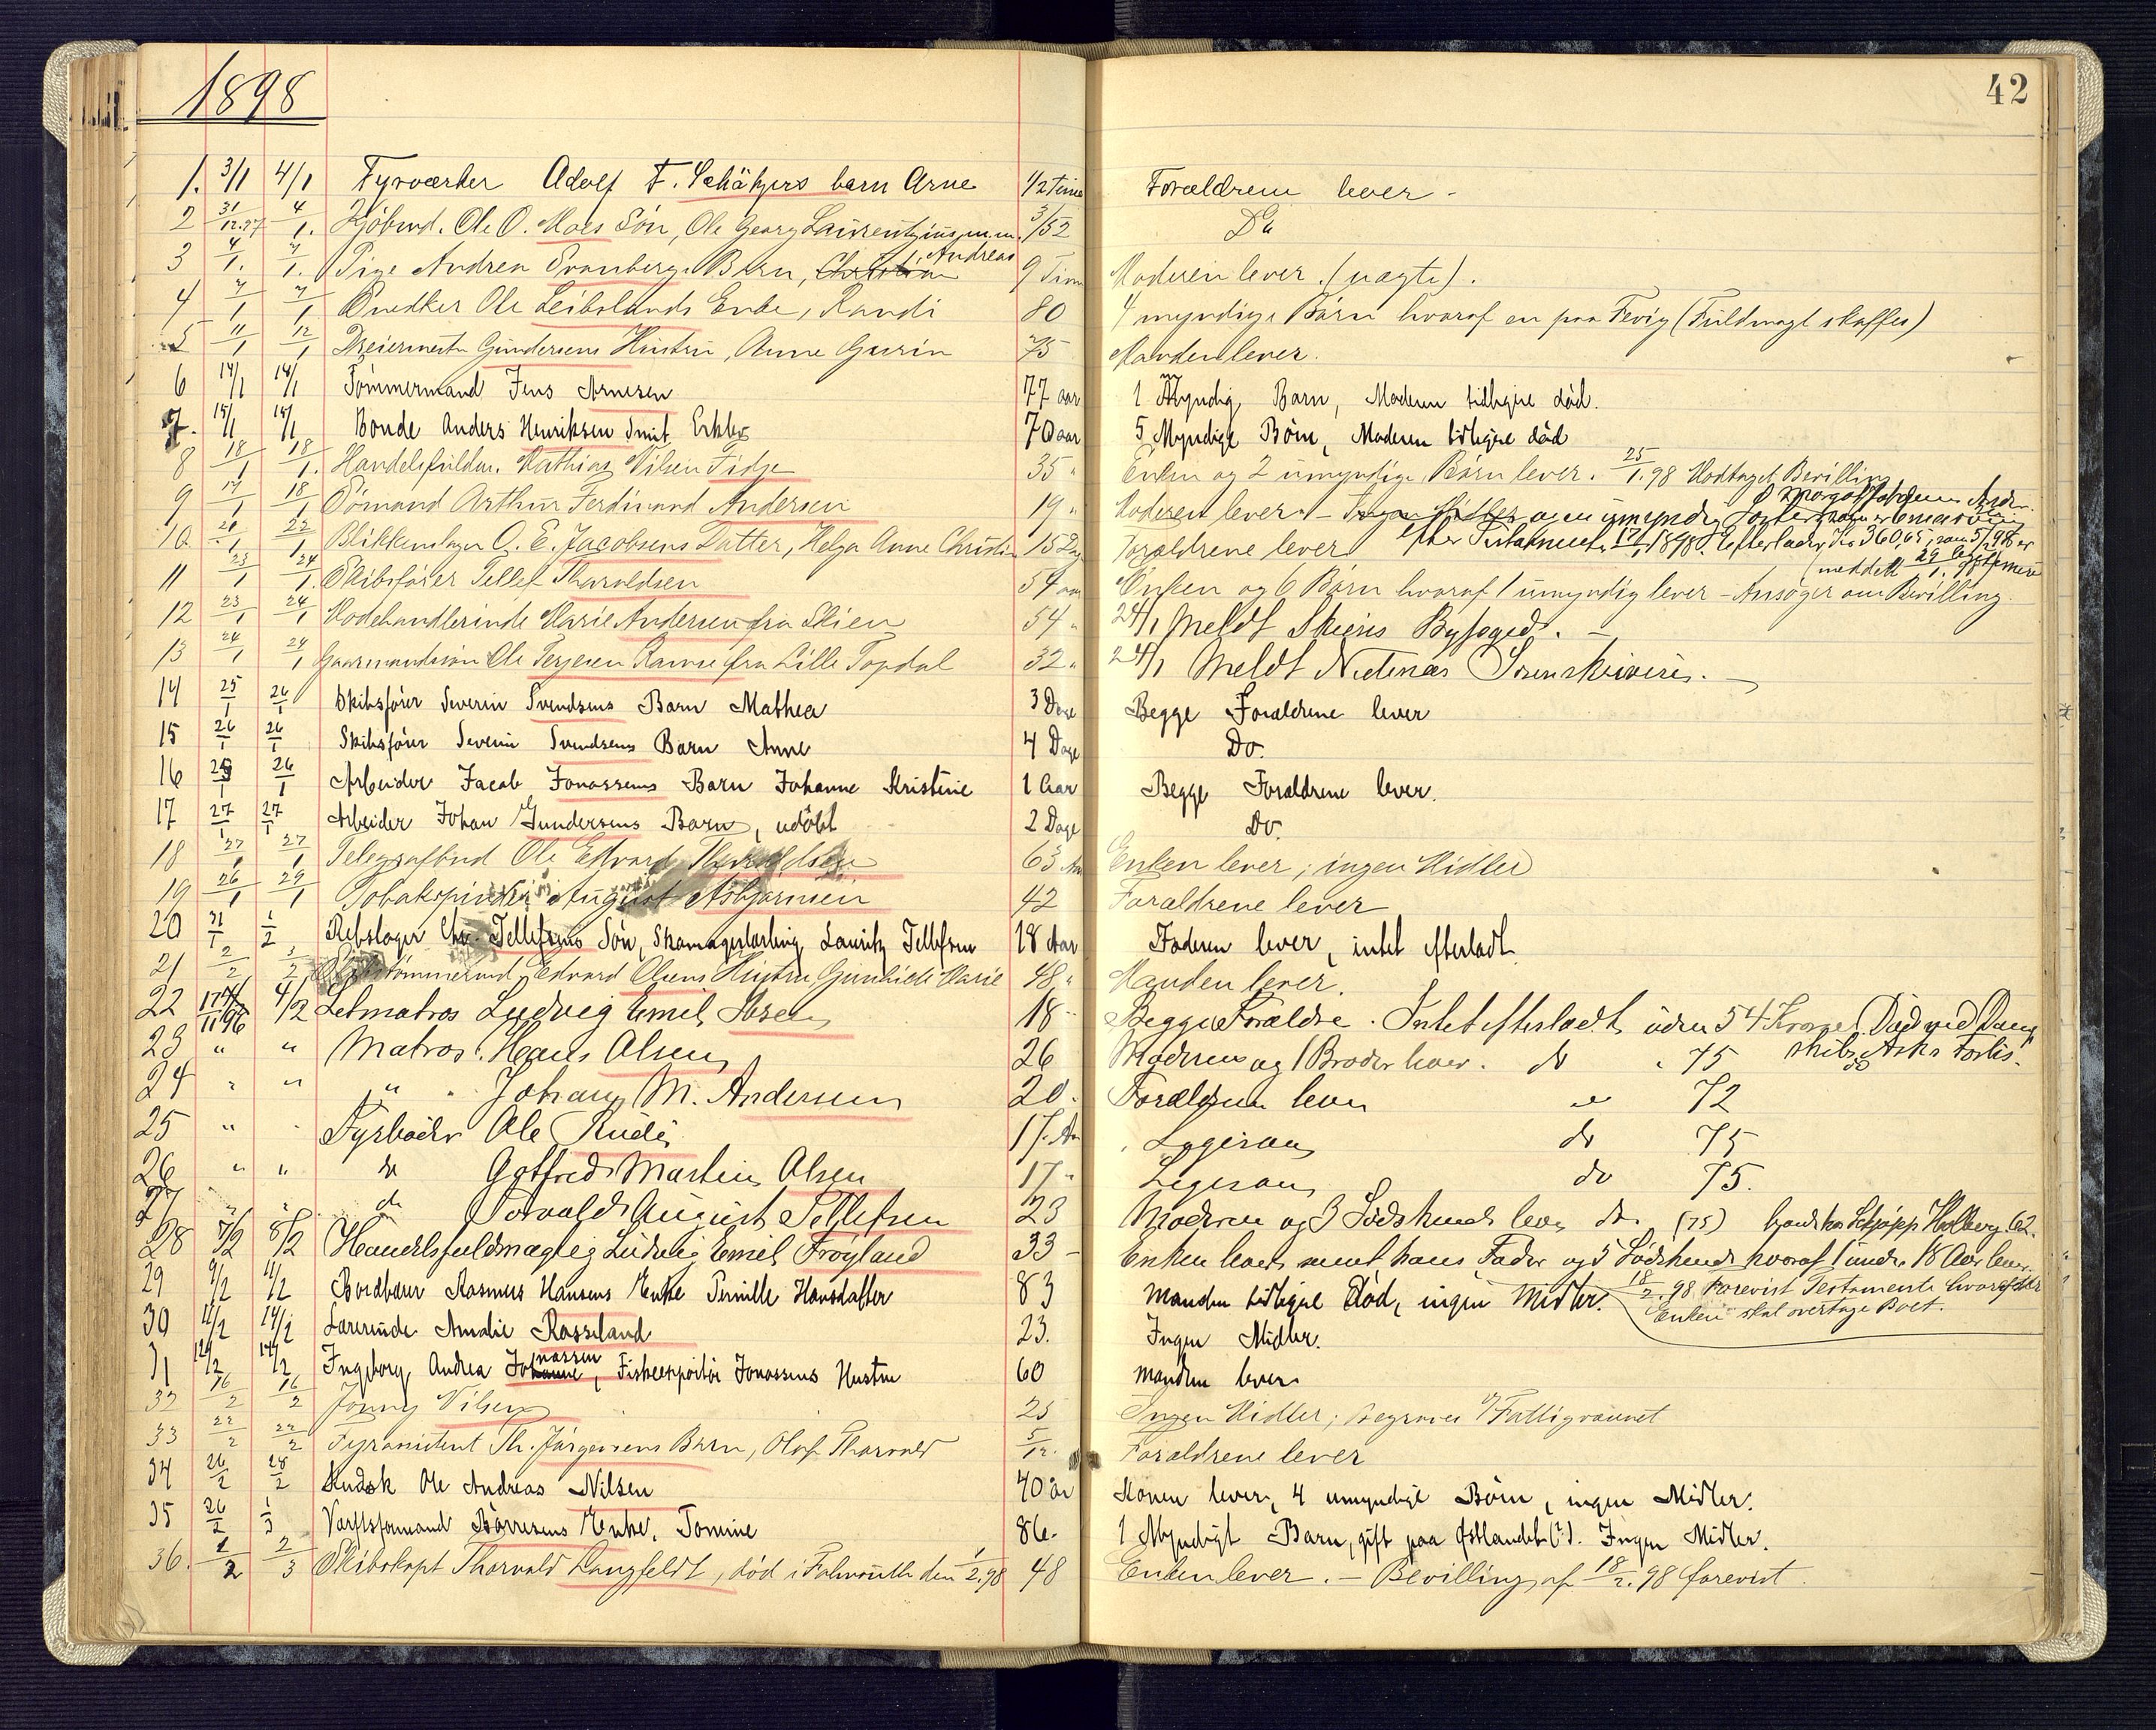 1898
42
1. 3/1 4/1 Fyrværker Adolf F. Schätzers barn Arne 1/2 Time Forældrene lever.
2 31/12.97 4/1. Kjöbmd. Ole O. Moes Sön, Ole Georg 3/52 Do
3 4/1. 7/1. Pige Andrea Svanbergs Barn, Andreas 9 Tim Moderen lever. (uægte).
4 7/1 7/1 Snedker Ole Leibslands Enke, Randi 80 4 myndige Börn hvoraf en paa Fevig (Fuldmagt skaffes)
5 11/1 12/1 Dreiermester Gundersens Hustru, Anne Gurin 75 Manden lever.
6 14/1 14/1 Tömmermand Jens Arnesen 77 aar 1 Myndig Barn, Moderen tidligere död.
7. 15/1 15/1 Bonde Anders Henriksen Smit 70 aar 5 Myndige Börn, Moderen tidligere död
8 18/1 18/1. Handelsfuldm. Mathias Nilsen Fidje 35 " Enken og 2 umyndige Börn lever. 25/1.98 Modtaget Bevilling
9 17/1 18/1 Sömand Arthur Ferdinand Andersen 19 " Moderen lever -
10 20/1 22/1 Blikkenslager O. E. Jacobsens Datter, Helga Anne 15 Forældrene lever
efter Testamente 17/1 1898.
meddelt 29/1.
11 23/1 24/1. Skibsförer Tellef Tharaldsen 54 aar Enken og 6 Börn hvoraf 1 umyndig lever - Ansöger om Bevilling
12 23/1 24/1 Modehandlerinde Marie Andersen fra Skien 54 " 24/1 Meldt Skiens Byfoged. -
13 24/1 24/1 Ole Terjesen Ramse fra Lille Topdal 32 " 24/1 Meldt Nedenæs Sorenskriveri. -
14 25/1 26/1 Skibsförer Severin Svendsens Barn Mathea 3 Dage Begge Forældrene lever
15 26/1 26/1 Skibsförer Severin Svendsens Barn Anne 4 Dage Do.
16 25/1 26/1 Arbeider Jacob Jonassens Barn Johanne Kristine 1 Aar Begge Forældrene lever.
17 27/1 27/1 Arbeider Johan Gundersens Barn, udöbt 2 Dage Do.
18 27/1 27/1 Telegrafbud Ole Edvard Tharaldsen 63 Aar Enken lever; ingen Midler
19 26/1 29/1 Tobakspinder August Asbjörnsen 42 Forældrene lever
20 31/1 1/2 Rebslager Chr. Tellefsens Sön, Skomagerlærling Lauritz Tellefsen 18 Aar Faderen lever, intet efterladt.
21 2/2 3/2 Skibstömmermd. Edvard Olsens Hustru Gunhilde Marie 48 " Manden lever.
22 17/11 96 4/2 Letmatros Ludvig Emil 18 - Begge Forældre. Intet efterladt uden 54 Kroner. Död ved Damp
23 " " Matros Hans Olsen 26 Moderen og 1 Broder lever. do " 75 skibet Asks Forlis.
24 " " " Johan M. Andersen 20. Forældrene lever " 72
25 " " Fyrböder Ole Rudi 17 Aar Ligesaa do 75
26 " " do Gotfred Martin Olsen 17 - Ligesaa do 75.
27 " " do Torvald August Tellefsen 23 Moderen og 3 Södskende lever do (75)
28 7/2 8/2 Handelsfuldmægtig Ludvig Emil Fröyland 33 - Enken lever samt hans Fader og 5 Södskende hvoraf 1 under 18 Aar lever.
29 9/2 11/2 Rasmus Hansens Enke Pernille Hansdatter 83 Manden tidligere Död, ingen Midler. 18/2.98 Forevist Testamente hvorefter
Enken skal overtage Boet.
30 11/2 14/2 Lærerinde Amalie Rosseland 23. Ingen Midler.
31 12/2 14/2 Ingeborg Andrea Jonassen, Jonassens Hustru 60 Manden lever
32 16/2 16/2 Jonny Nilsen 25 Ingen Midler; Begraves v/ Fattigvæsnet
33 22/2 22/2 Fyrassistent Th. Jörgensens Barn, Olaf Thorvald 5/12. Forældrene lever
34 26/2 28/2 Kudsk Ole Andreas Nilsen 40 år Konen lever, 4 umyndige Börn, ingen Midler.
35 26/2 1/3 Værftsformand Börresens Enke, Tomine 86. 1 Myndigt Barn, gift paa Østlandet (?). Ingen Midler.
36. 1/2 2/3 Skibskapt Thorvald Langfeldt, död i Falmouth den 1/2.98 48 Enken lever. - Bevilling af 18/2.98 forevist.